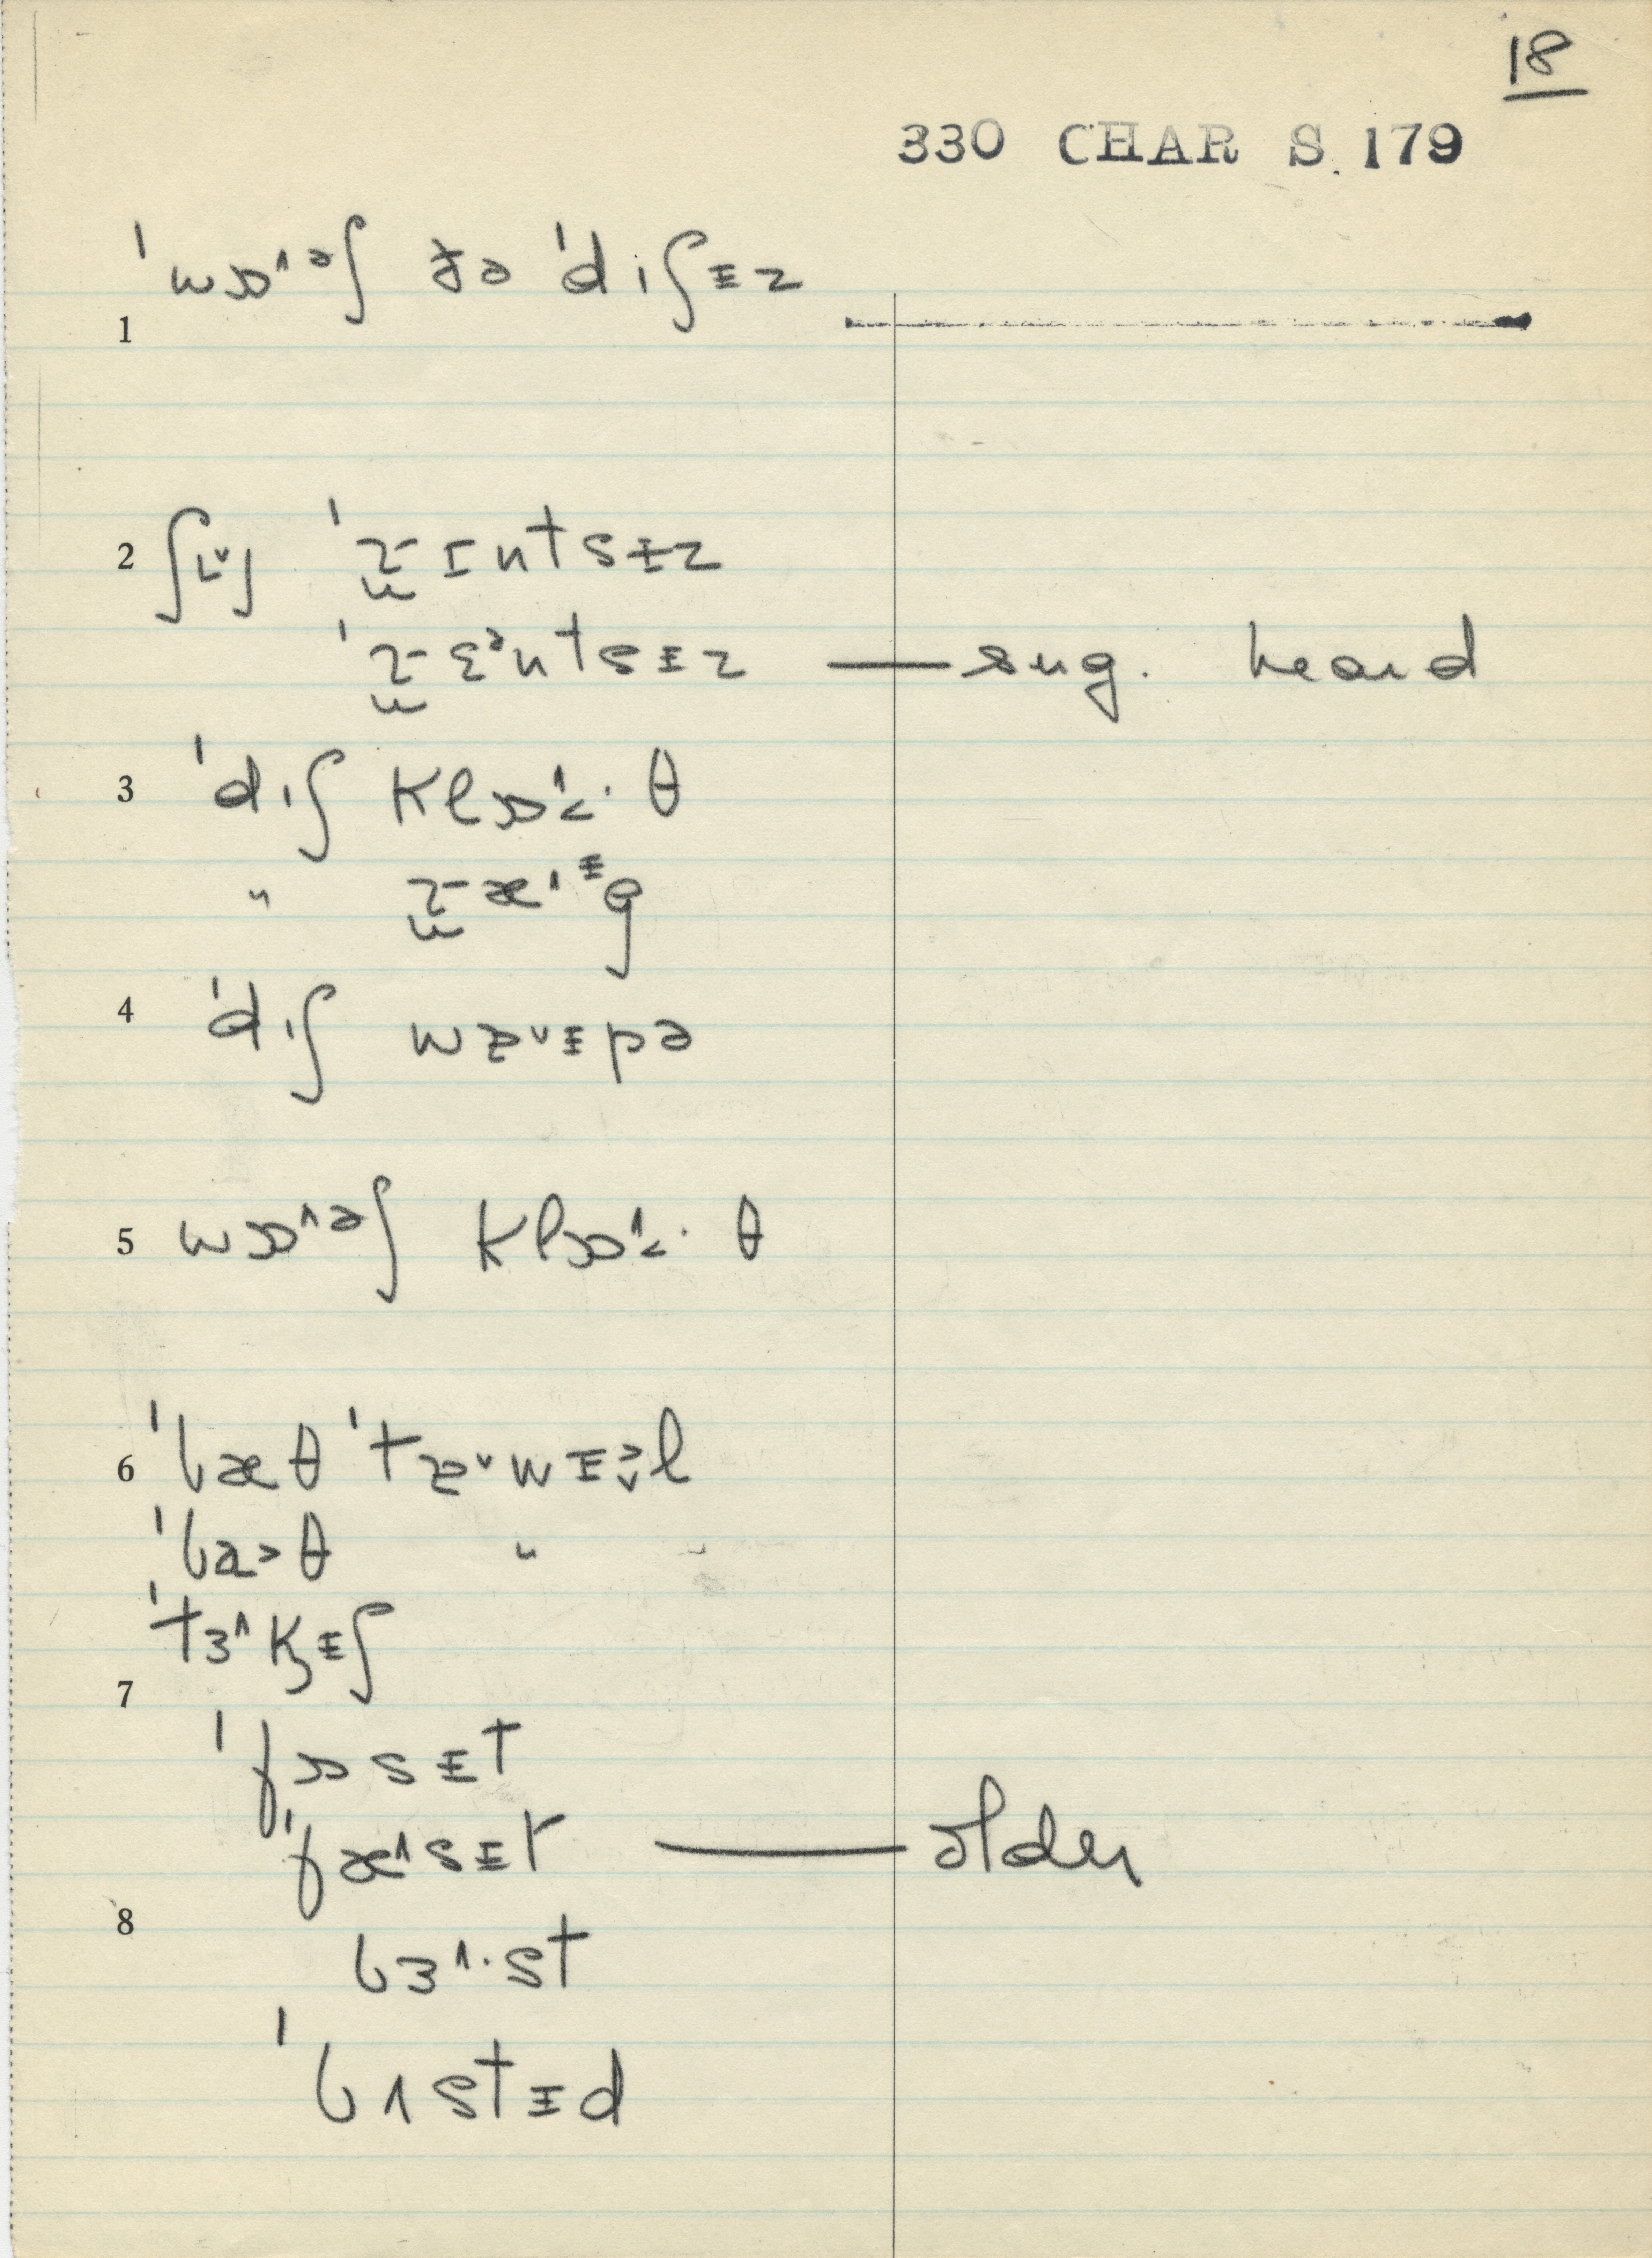 18
330 CHAR S. 179
ˈwɒ˄ᵊʃ ðə ˈdɪʃɪ̵z
1
2 ʃɪ˅ʃ ˈɹ̫ɪntsɪ̵z
ˈɹ̫ɛᵊntsɪ̵z — sug. heard
3 ˈdɪʃ klɒ˄˂· θ
" ɹ̫æ˄ᶤg
4 ˈdɪʃ wɐ˅ɪ̵pə
5 wɒ˄ᵊʃ klɒ˄˂· θ
6 ˈbæθ ˈtɐ˅wɪ̵l
ˈba˃θ "
ˈtɜ˄kɪ̵ʃ
7
ˈfɒsɪ̵t
ˈfæ˄sɪ̵t — older
8
bɜ˄·st
ˈbʌstɪ̵d